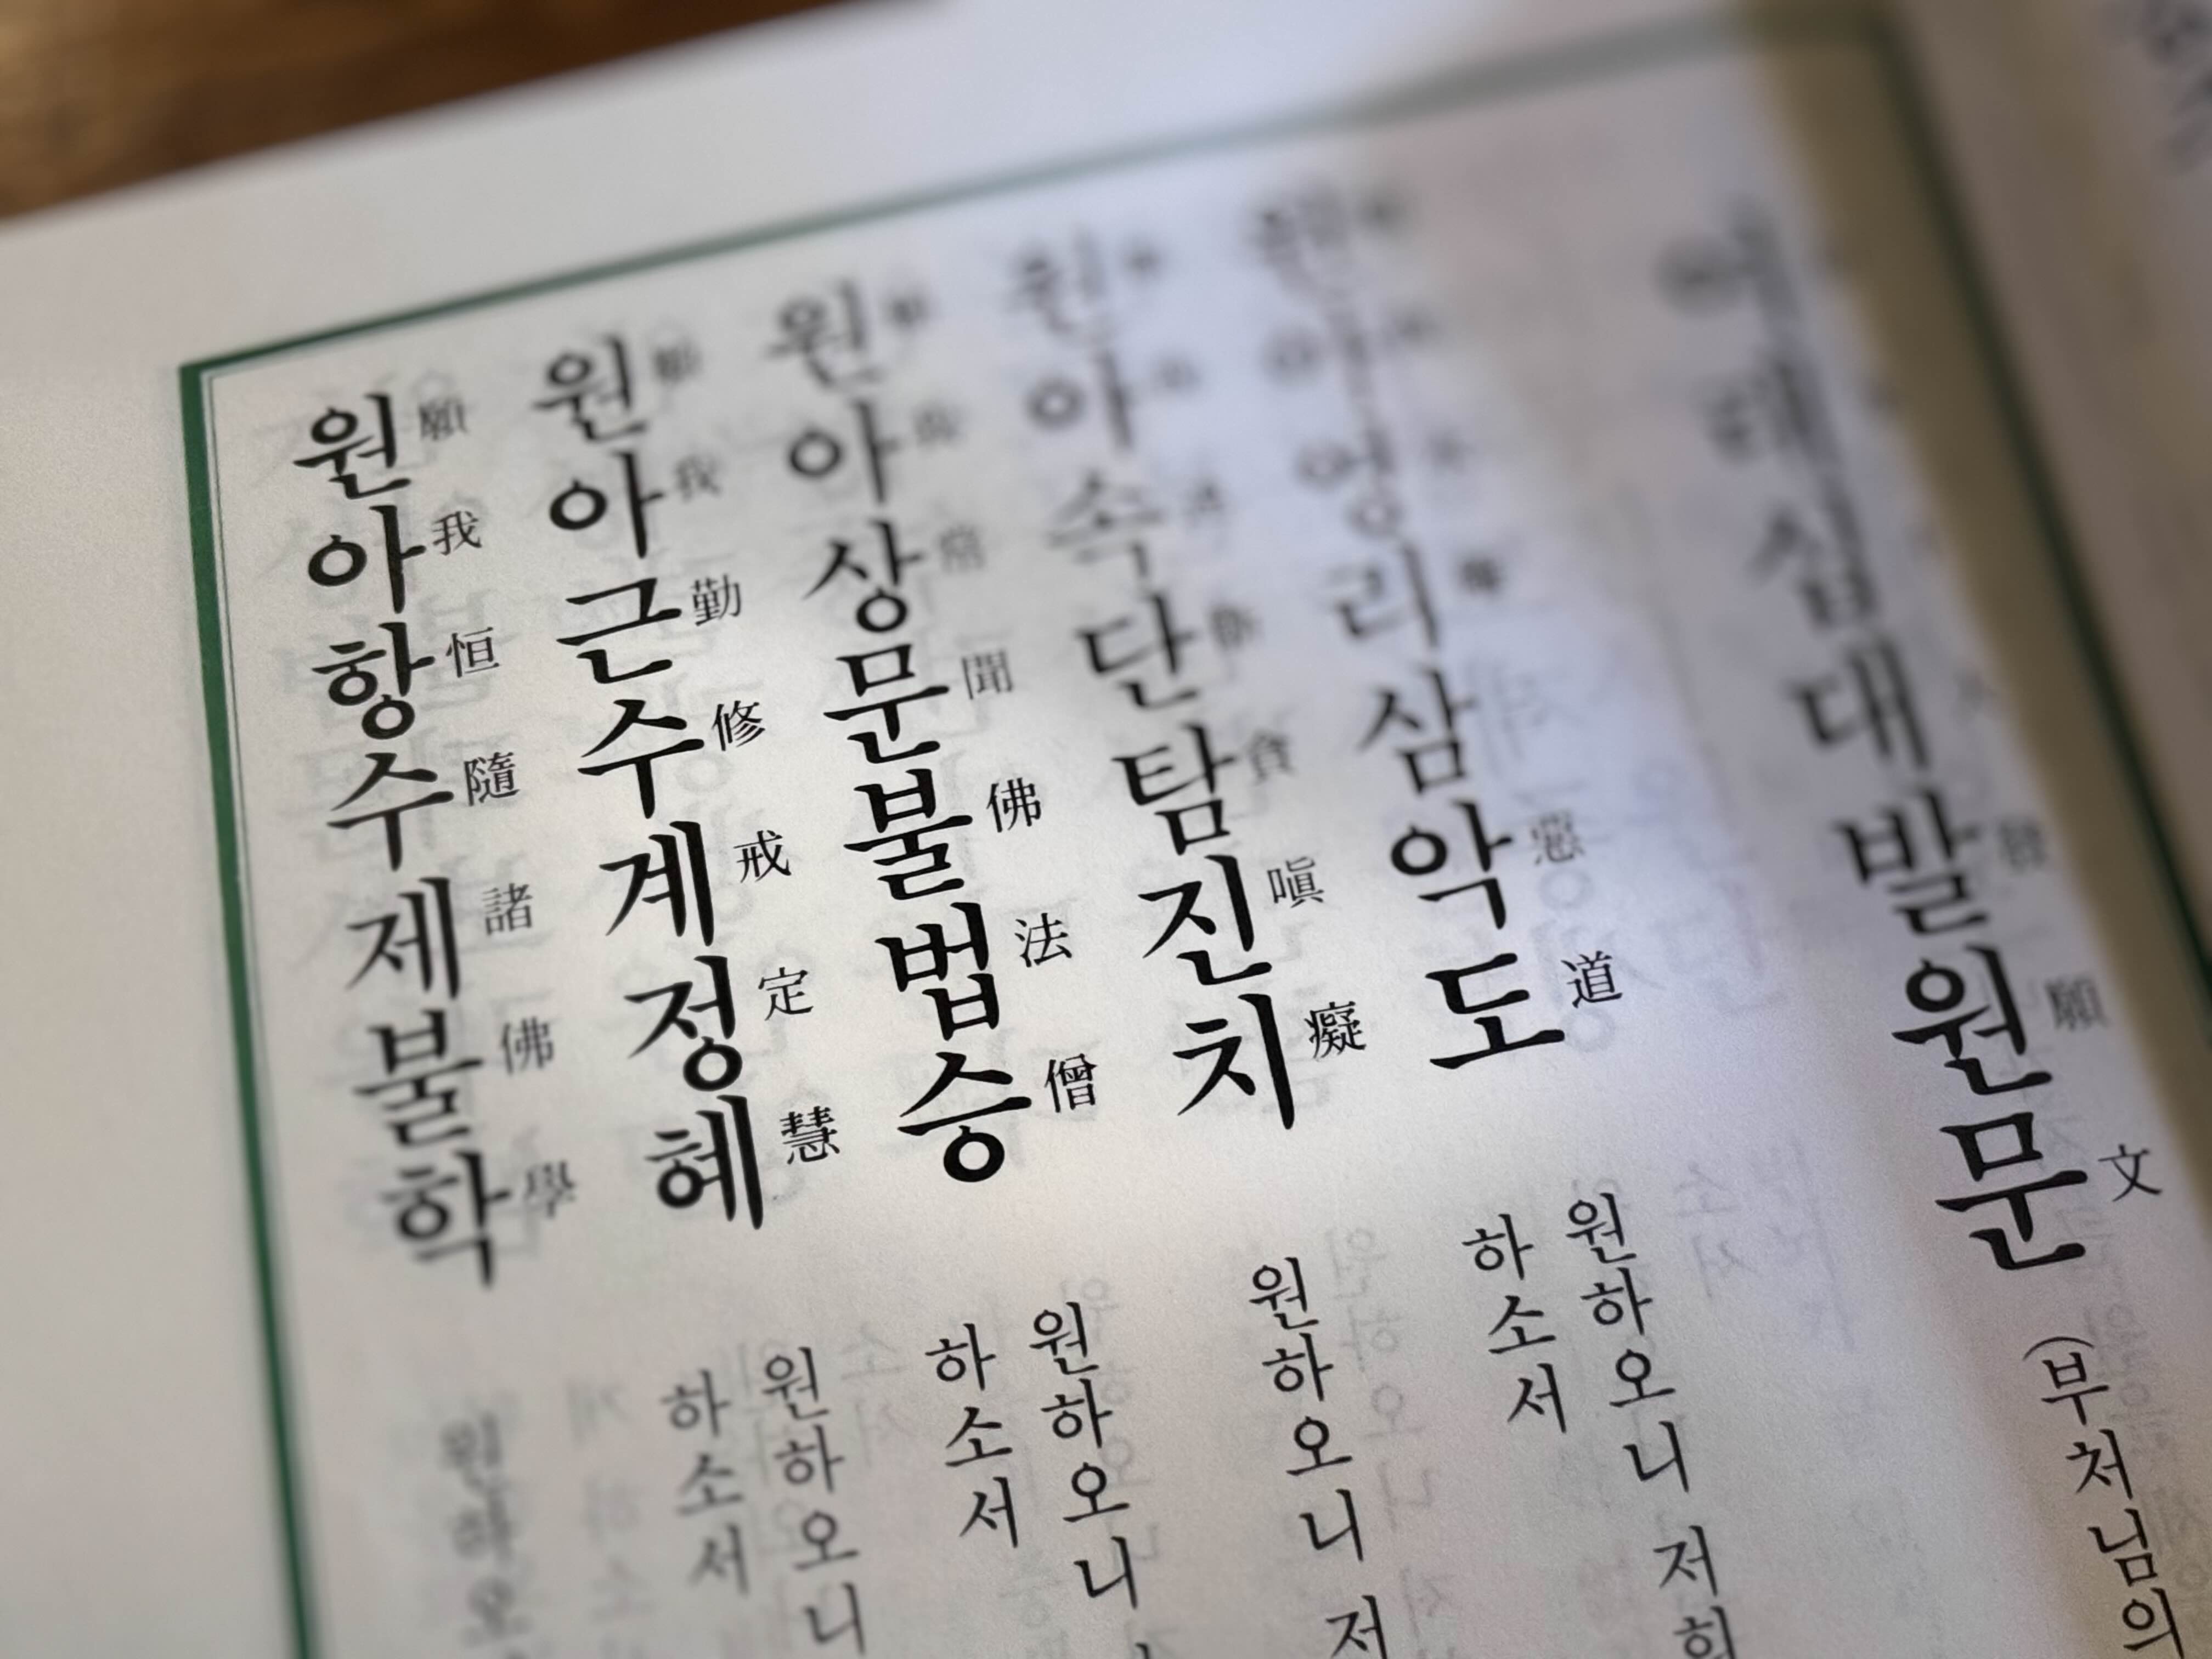 여래십대발원문 (부처님의
發願文
원아영리삼악도
惡道
원하오니 저희
하소서
원아속단탐진치
斷貪嗔癡
원하오니 저
원아상문불법승
常聞佛法僧
원하오니
하소서
원아근수계정혜
願我勤修戒定慧
원하오니
하소서
원아항수제불학
願我恒隨諸佛學
원하오